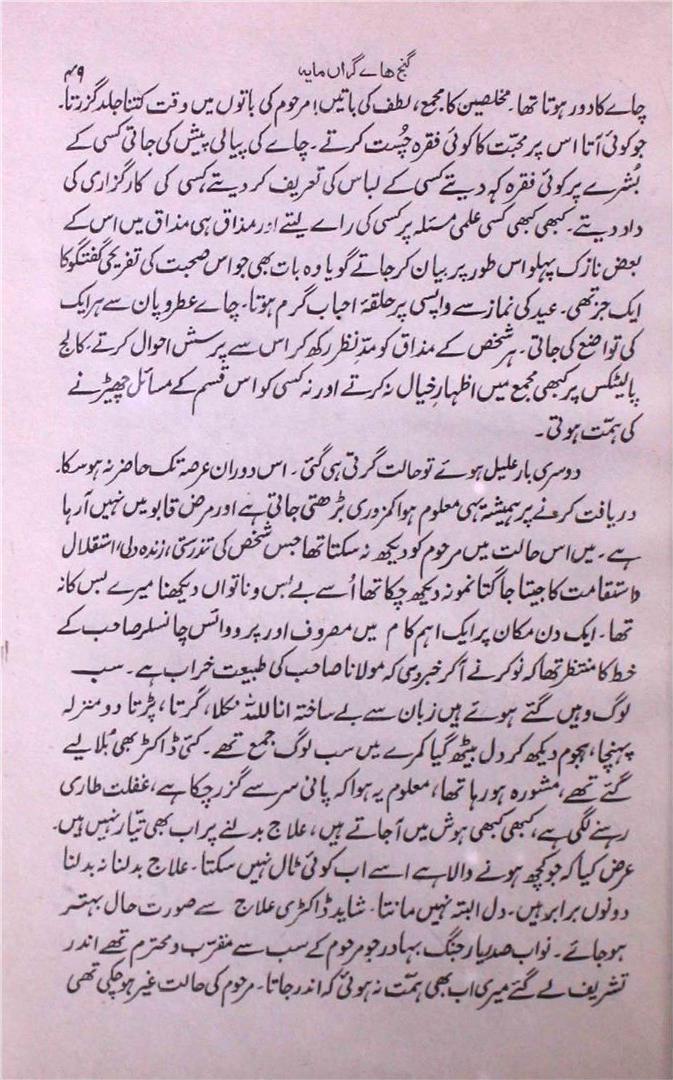 گنج ھاے گراں مایہ ۴۹
چاے کا دور ہوتا تھا۔ مخلصین کا مجمع، لطف کی باتیں! مرحوم کی باتوں میں وقت کتنا جلد گزرتا۔
جو کوئی آتا اس پر محبّت کا کوئی فقرہ چُست کرتے۔ چاے کی پیالی پیش کی جاتی کسی کے
بُشرے پر کوئی فقرہ کہہ دیتے کسی کے لباس کی تعریف کر دیتے کسی کی کارگزاری کی
داد دیتے۔ کبھی کبھی کسی علمی مسئلہ پر کسی کی راے لیتے اور مذاق ہی مذاق میں اس کے
بعض نازک پہلو اس طور پر بیان کر جاتے گویا وہ بات بھی جو اس صحبت کی تفریحی گفتگو کا
ایک جز تھی۔ عید کی نماز سے واپسی پر حلقۂ احباب گرم ہوتا۔ چاے عطر و پان سے ہر ایک
کی تواضع کی جاتی۔ ہر شخص کے مذاق کو مدّ نظر رکھ کر اس سے پرسش احوال کرتے۔ کالج
پالیٹکس پر کبھی مجمع میں اظہارِ خیال نہ کرتے اور نہ کسی کو اس قسم کے مسائل چھیڑنے
کی ہمّت ہوتی۔
دوسری بار علیل ہوئے تو حالت گرتی ہی گئی۔ اس دوران عرصہ تک حاضر نہ ہو سکا۔
دریافت کرنے پر ہمیشہ یہی معلوم ہوا کمزوری بڑھتی جاتی ہے اور مرض قابو میں نہیں آ رہا
ہے۔ میں اس حالت میں مرحوم کو دیکھ نہ سکتا تھا جس شخص کی تندرستی، زندہ دلی، استقلال
و استقامت کا جیتا جاگتا نمونہ دیکھ چکا تھا اُسے بے بس و ناتواں دیکھنا میرے بس کا نہ
تھا۔ ایک دن مکان پر ایک اہم کام میں مصروف اور پرو وائس چانسلر صاحب کے
خط کا منتظر تھا کہ نوکر نے آکر خبر دی کہ مولانا صاحب کی طبیعت خراب ہے۔ سب
لوگ وہیں گئے ہوئے ہیں زبان سے بے ساختہ انا للہ نکلا، گرتا، پڑتا دو منزلہ
پہنچا، ہجوم دیکھ کر دل بیٹھ گیا کمرے میں سب لوگ جمع تھے۔ کئی ڈاکٹر بھی بُلا لیے
گئے تھے، مشورہ ہو رہا تھا، معلوم یہ ہوا کہ پانی سر سے گزر چکا ہے، غفلت طاری
رہنے لگی ہے، کبھی کبھی ہوش میں آجاتے ہیں، علاج بدلنے پر اب بھی تیّار نہیں ہیں۔
عرض کیا کہ جو کچھ ہونے والا ہے اسے اب کوئی ٹال نہیں سکتا۔ علاج بدلنا نہ بدلنا
دونوں برابر ہیں۔ دل البتہ نہیں مانتا۔ شاید ڈاکٹری علاج سے صورت حال بہتر
ہو جائے۔ نواب صدر یار جنگ بہادر جو مرحوم کے سب سے مقرّب و محترم تھے اندر
تشریف لے گئے میری اب بھی ہمّت نہ ہوئی کہ اندر جاتا۔ مرحوم کی حالت غیر ہو چکی تھی